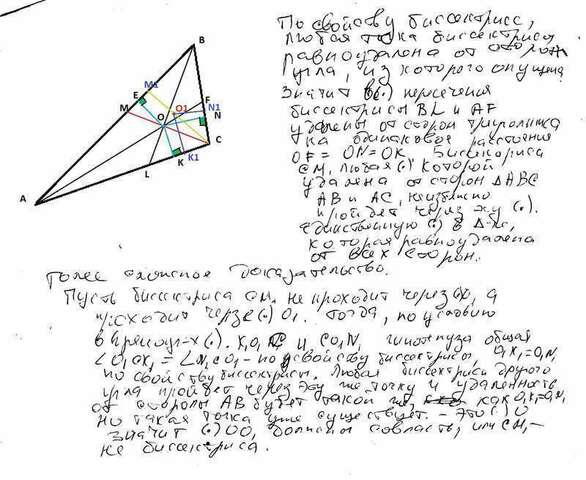 По свойству биссектрис,
любая точка биссектрисы
равноудалена от сторон
угла, из которого опущена
Значит в (•) пересечения
биссектрисы BL и AF
удалены от сторон треугольника
на одинаковое расстояния
OF = ON = OK. Биссектриса
CM, любая (•) которой
удалена от сторон ΔABC
AB и AC, неизбежно
пройдет через эту (•).
единственную (•) в Δ-ке,
которая равноудалена
от всех сторон.
B
M1
E
M
F
N1
O
O1
N
C
K
K1
L
A
Более сложное доказательство.
Пусть биссектриса CM, не проходит через (•)O, а
проходит через (•) O1. Тогда, по условию
в прямоуг-х (•). K1O1C и CO1N1 гипотенуза общая
∠O1CK1 = ∠N1CO1 - по свойству биссектрисы, O1K1=O1N1
по свойству биссектрисы. Любая биссектриса другого
угла пройдет через эту же точку и удаленность
от стороны AB будет такой же, как O1K1=O1N1
Но такая точка уже существует. - Это (•) O
Значит (•) OO1 должны совпасть, или CM1 -
не биссектриса.